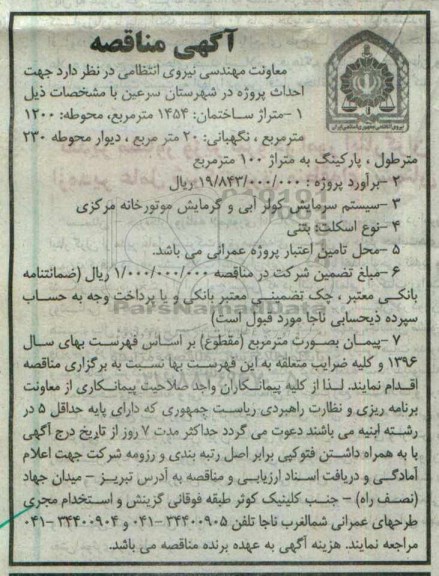 آگهی مناقصه
معاونت مهندسی نیروی انتظامی در نظر دارد جهت
احداث پروژه در شهرستان سرعین با مشخصات ذیل
۱-متراژ ساختمان: ۱۴۵۴ مترمربع، محوطه: ۱۲۰۰
مترمربع ، نگهبانی: ۲۰ متر مربع ، دیوار محوطه ۲۳۰
مترطول ، پارکینگ به متراژ ۱۰۰ مترمربع
۲-برآورد پروژه : ۱۹/۸۴۳/۰۰۰/۰۰۰ ریال
۳-سیستم سرمایش کولر آبی و گرمایش موتورخانه مرکزی
۴-نوع اسکلت: بتنی
۵-محل تامین اعتبار پروژه عمرانی می باشد.
۶-مبلغ تضمین شرکت در مناقصه ۱/۰۰۰/۰۰۰/۰۰۰ ریال (ضمانتنامه
بانکی معتبر ، چک تضمینی معتبر بانکی و یا پرداخت وجه به حساب
سپرده ذیحسابی ناجا مورد قبول است)
۷-پیمان بصورت مترمربع (مقطوع) بر اساس فهرست بهای سال
۱۳۹۶ و کلیه ضرایب متعلقه به این فهرست بها نسبت به برگزاری مناقصه
اقدام نمایند. لذا از کلیه پیمانکاران واجد صلاحیت پیمانکاری از معاونت
برنامه ریزی و نظارت راهبردی ریاست جمهوری که دارای پایه حداقل ۵ در
رشته ابنیه می باشند دعوت می گردد حداکثر مدت ۷ روز از تاریخ درج آگهی
با به همراه داشتن فتوکپی برابر اصل رتبه بندی و رزومه شرکت جهت اعلام
آمادگی و دریافت اسناد ارزیابی و مناقصه به آدرس تبریز – میدان جهاد
(نصف راه) – جنب کلینیک کوثر طبقه فوقانی گزینش و استخدام مجری
طرحهای عمرانی شمالغرب ناجا تلفن ۳۴۴۰۰۹۰۵-۰۴۱ و ۳۴۴۰۰۹۰۴-۰۴۱
مراجعه نمایند. هزینه آگهی به عهده برنده مناقصه می باشد.
ParsNamadData